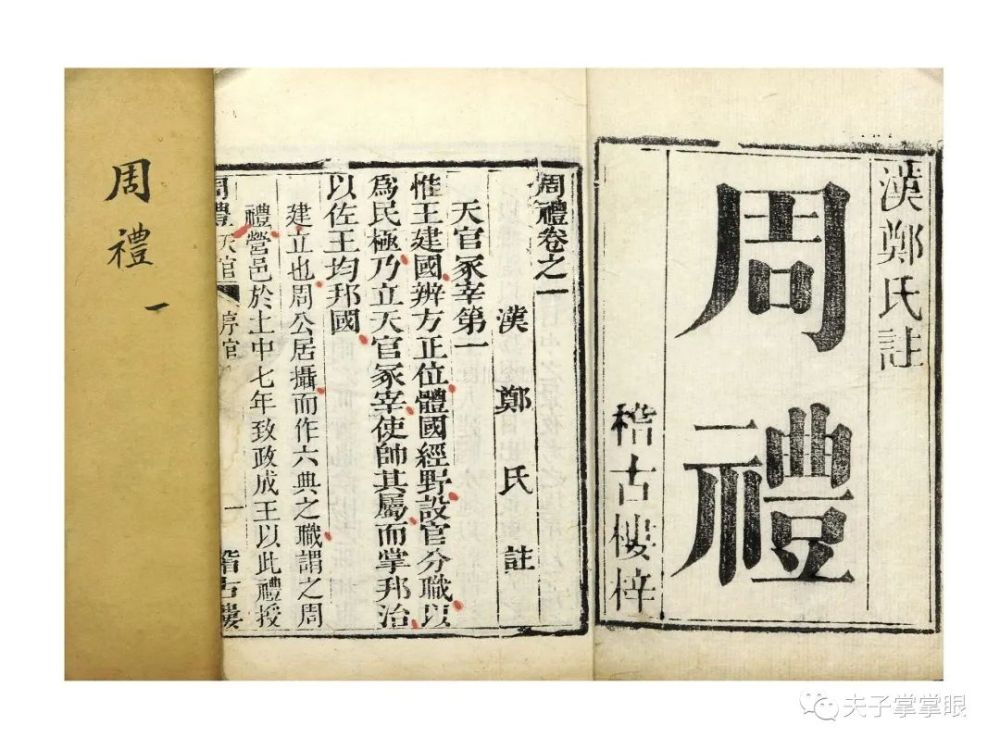 漢鄭氏註
周禮
稽古樓梓
周禮卷之一
漢 鄭氏註
天官冢宰第一
惟王建國辨方正位體國經野設官分職以
為民極乃立天官冢宰使帥其屬而掌邦治
以佐王均邦國
建立也周公居攝而作六典之職謂之周
禮營邑於土中七年致政成王以此禮授
周禮天官
序官
一
稽古樓
周禮
一
夫子掌掌眼